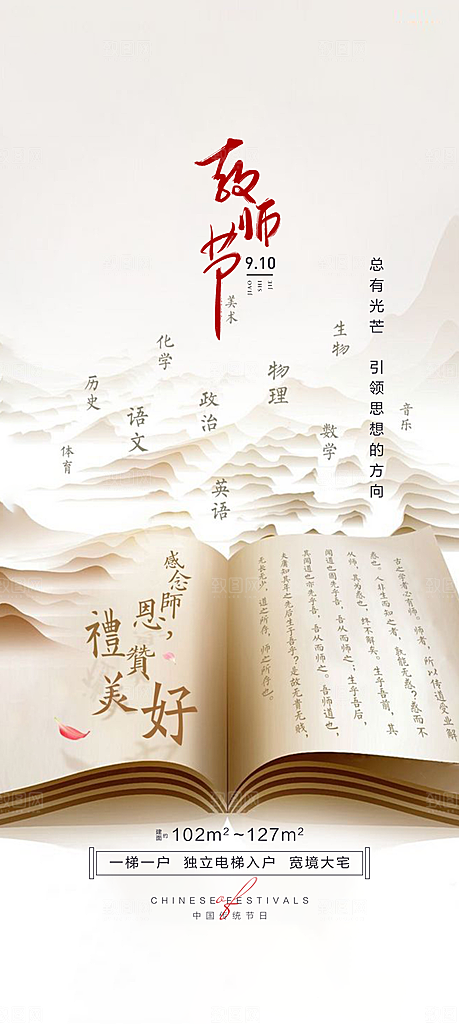 教师节
9.10
JIE
SHI
JIAO
总有光芒 引领思想的方向
美术
生物
化学
物理
历史
政治
语文
音乐
数学
体育
英语
感念師恩,
禮贊
美好
古之学者必有师。师者,所以传道受业解
惑也。人非生而知之者,孰能无惑?惑而不
从师,其为惑也,终不解矣。生乎吾前,其
闻道也固先乎吾,吾从而师之;生乎吾后,
其闻道也亦先乎吾,吾从而师之。吾师道也,
夫庸知其年之先后生于吾乎?是故无贵无贱,
无长无少,道之所存,师之所存也。
建面约102m²~127m²
一梯一户 独立电梯入户 宽境大宅
CHINESE of FESTIVALS
中国传统节日